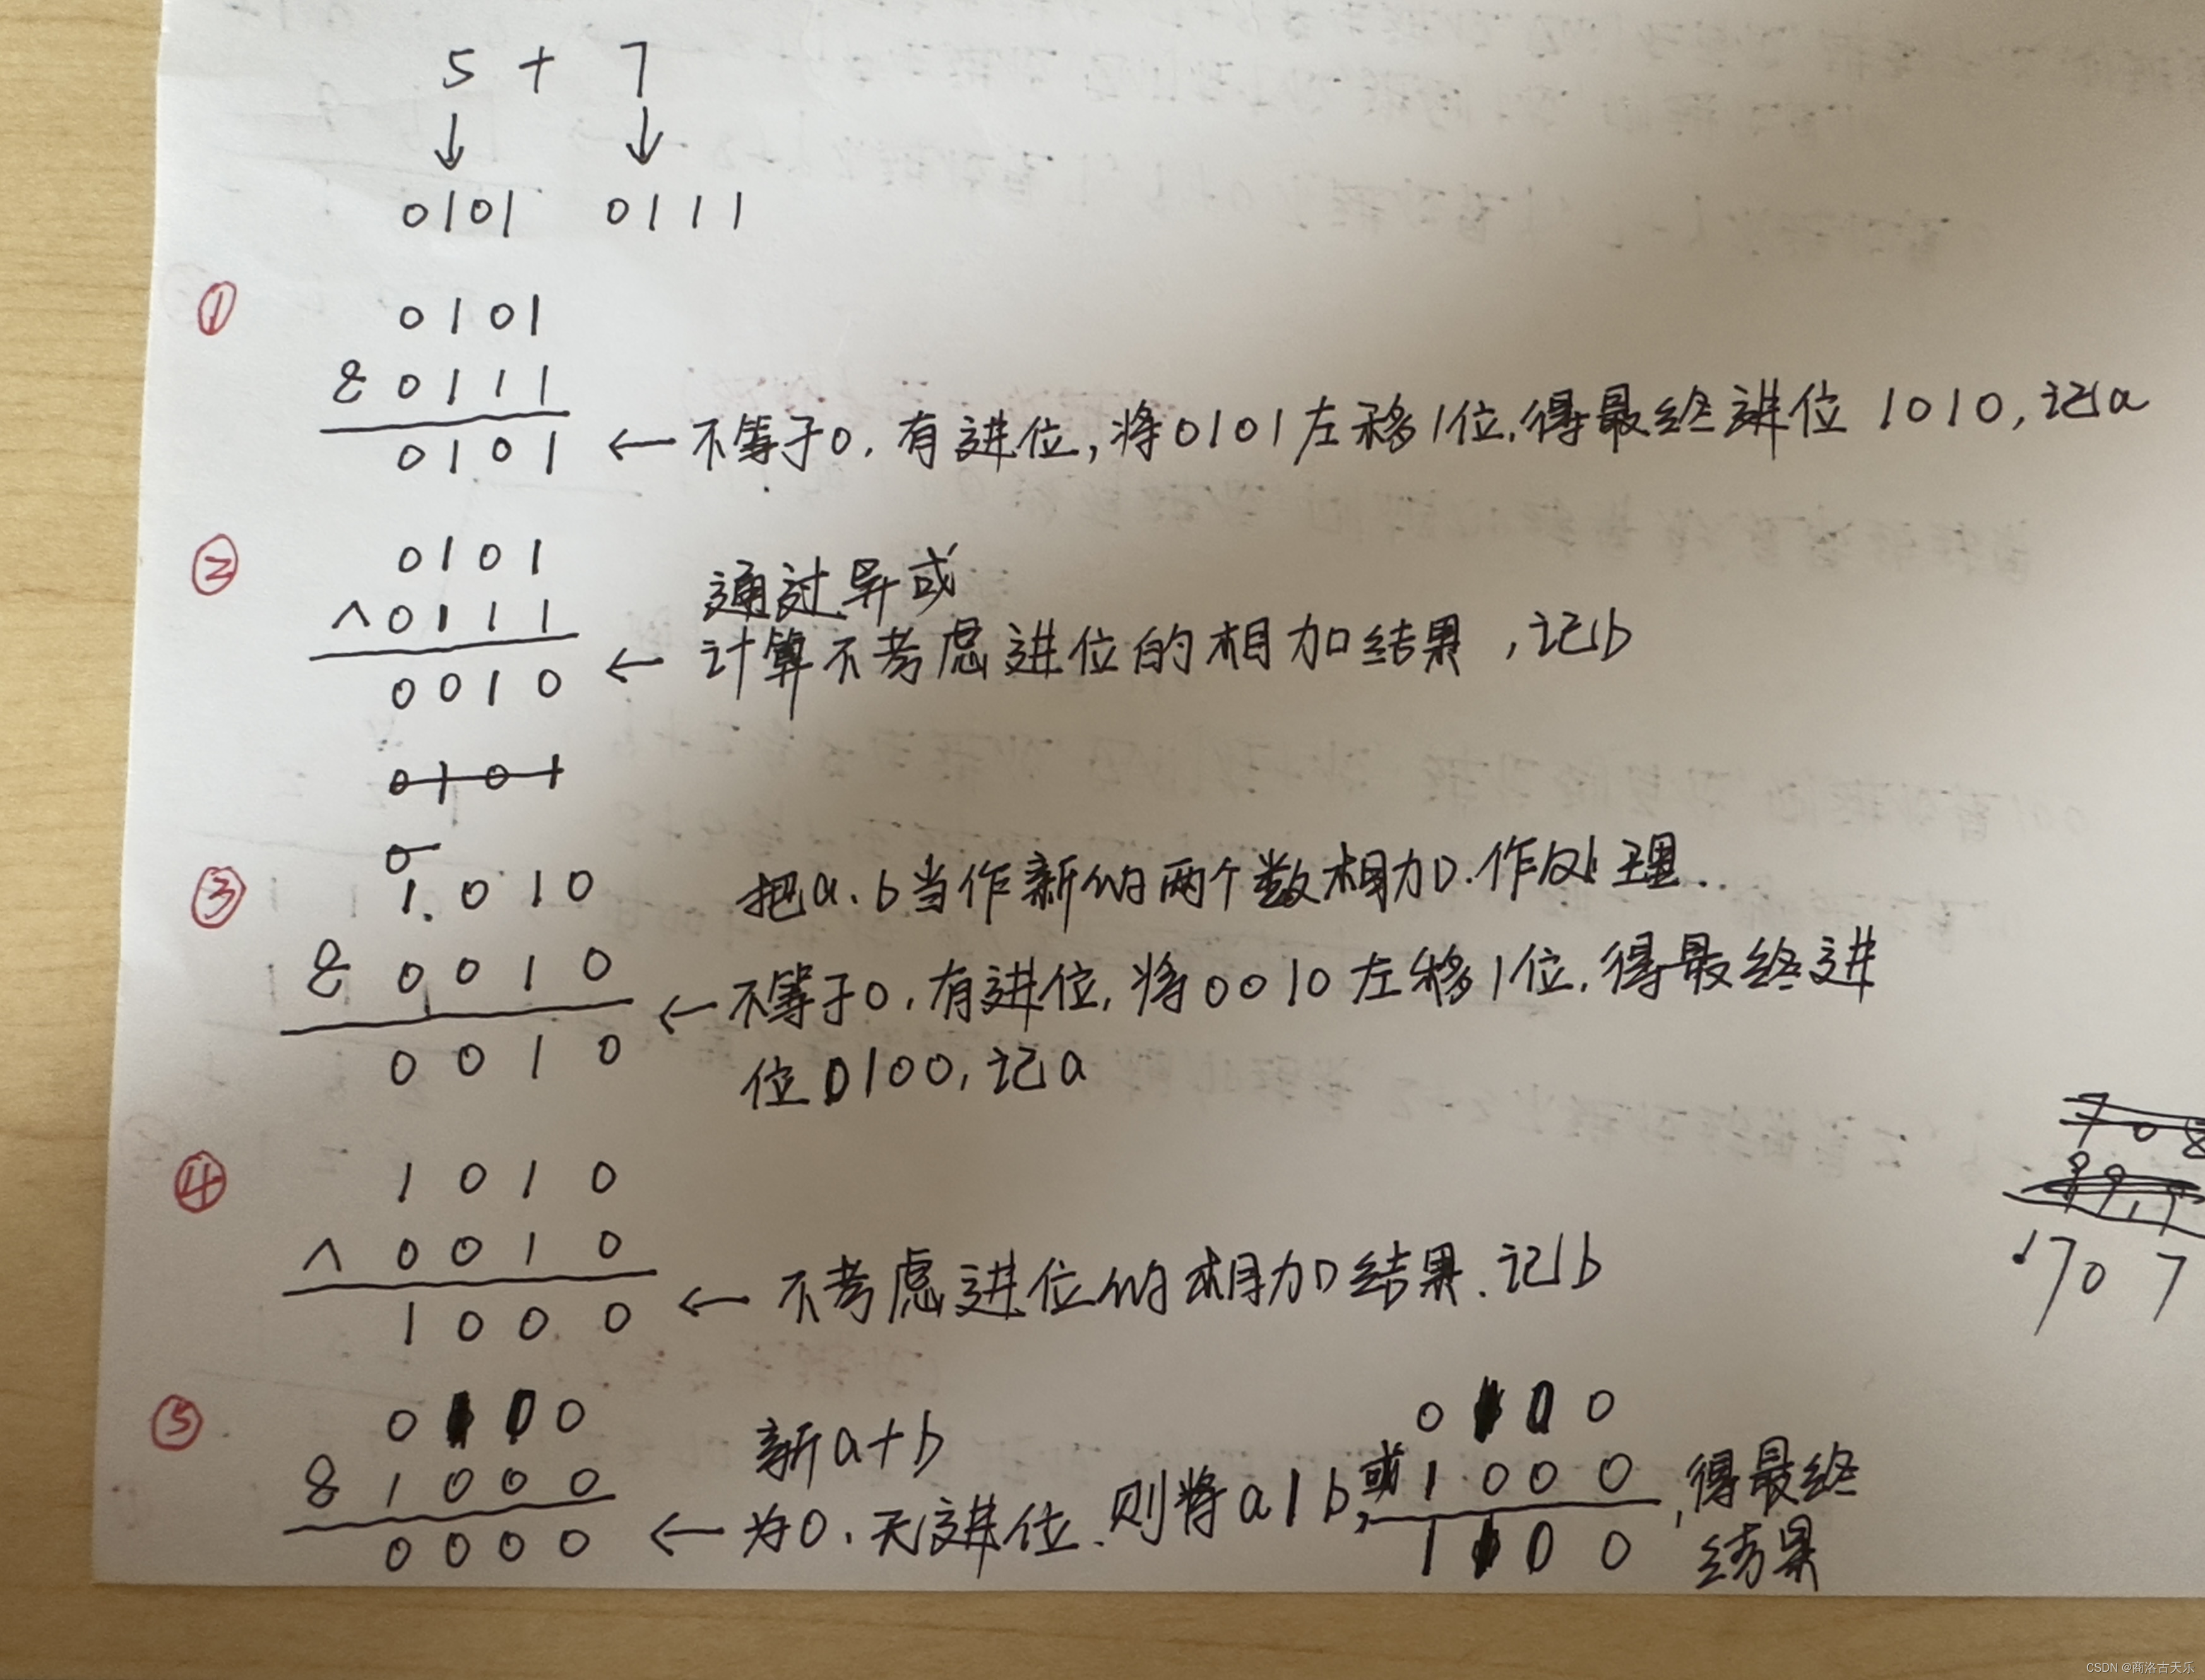 5 + 7
↓ ↓
0101 0111
① 0101
& 0111
0101 ← 不等于0,有进位,将0101左移1位,得最终进位 1010,记a
② 0101
通过异或
^ 0111
0010 ← 计算不考虑进位的相加结果,记b
0101
0
③ 1010 把a、b当作新的两个数相加,作处理.
& 0010
0010 ← 不等于0,有进位,将0010左移1位,得最终进
位0100,记a
④ 1010
^ 0010
1000 ← 不考虑进位的相加结果,记b
⑤ 0100 新a+b 0100
& 1000
0000 ← 为0,无进位,则将a|b,或1000,得最终
1100 结果
708
707
CSDN @商洛古天乐